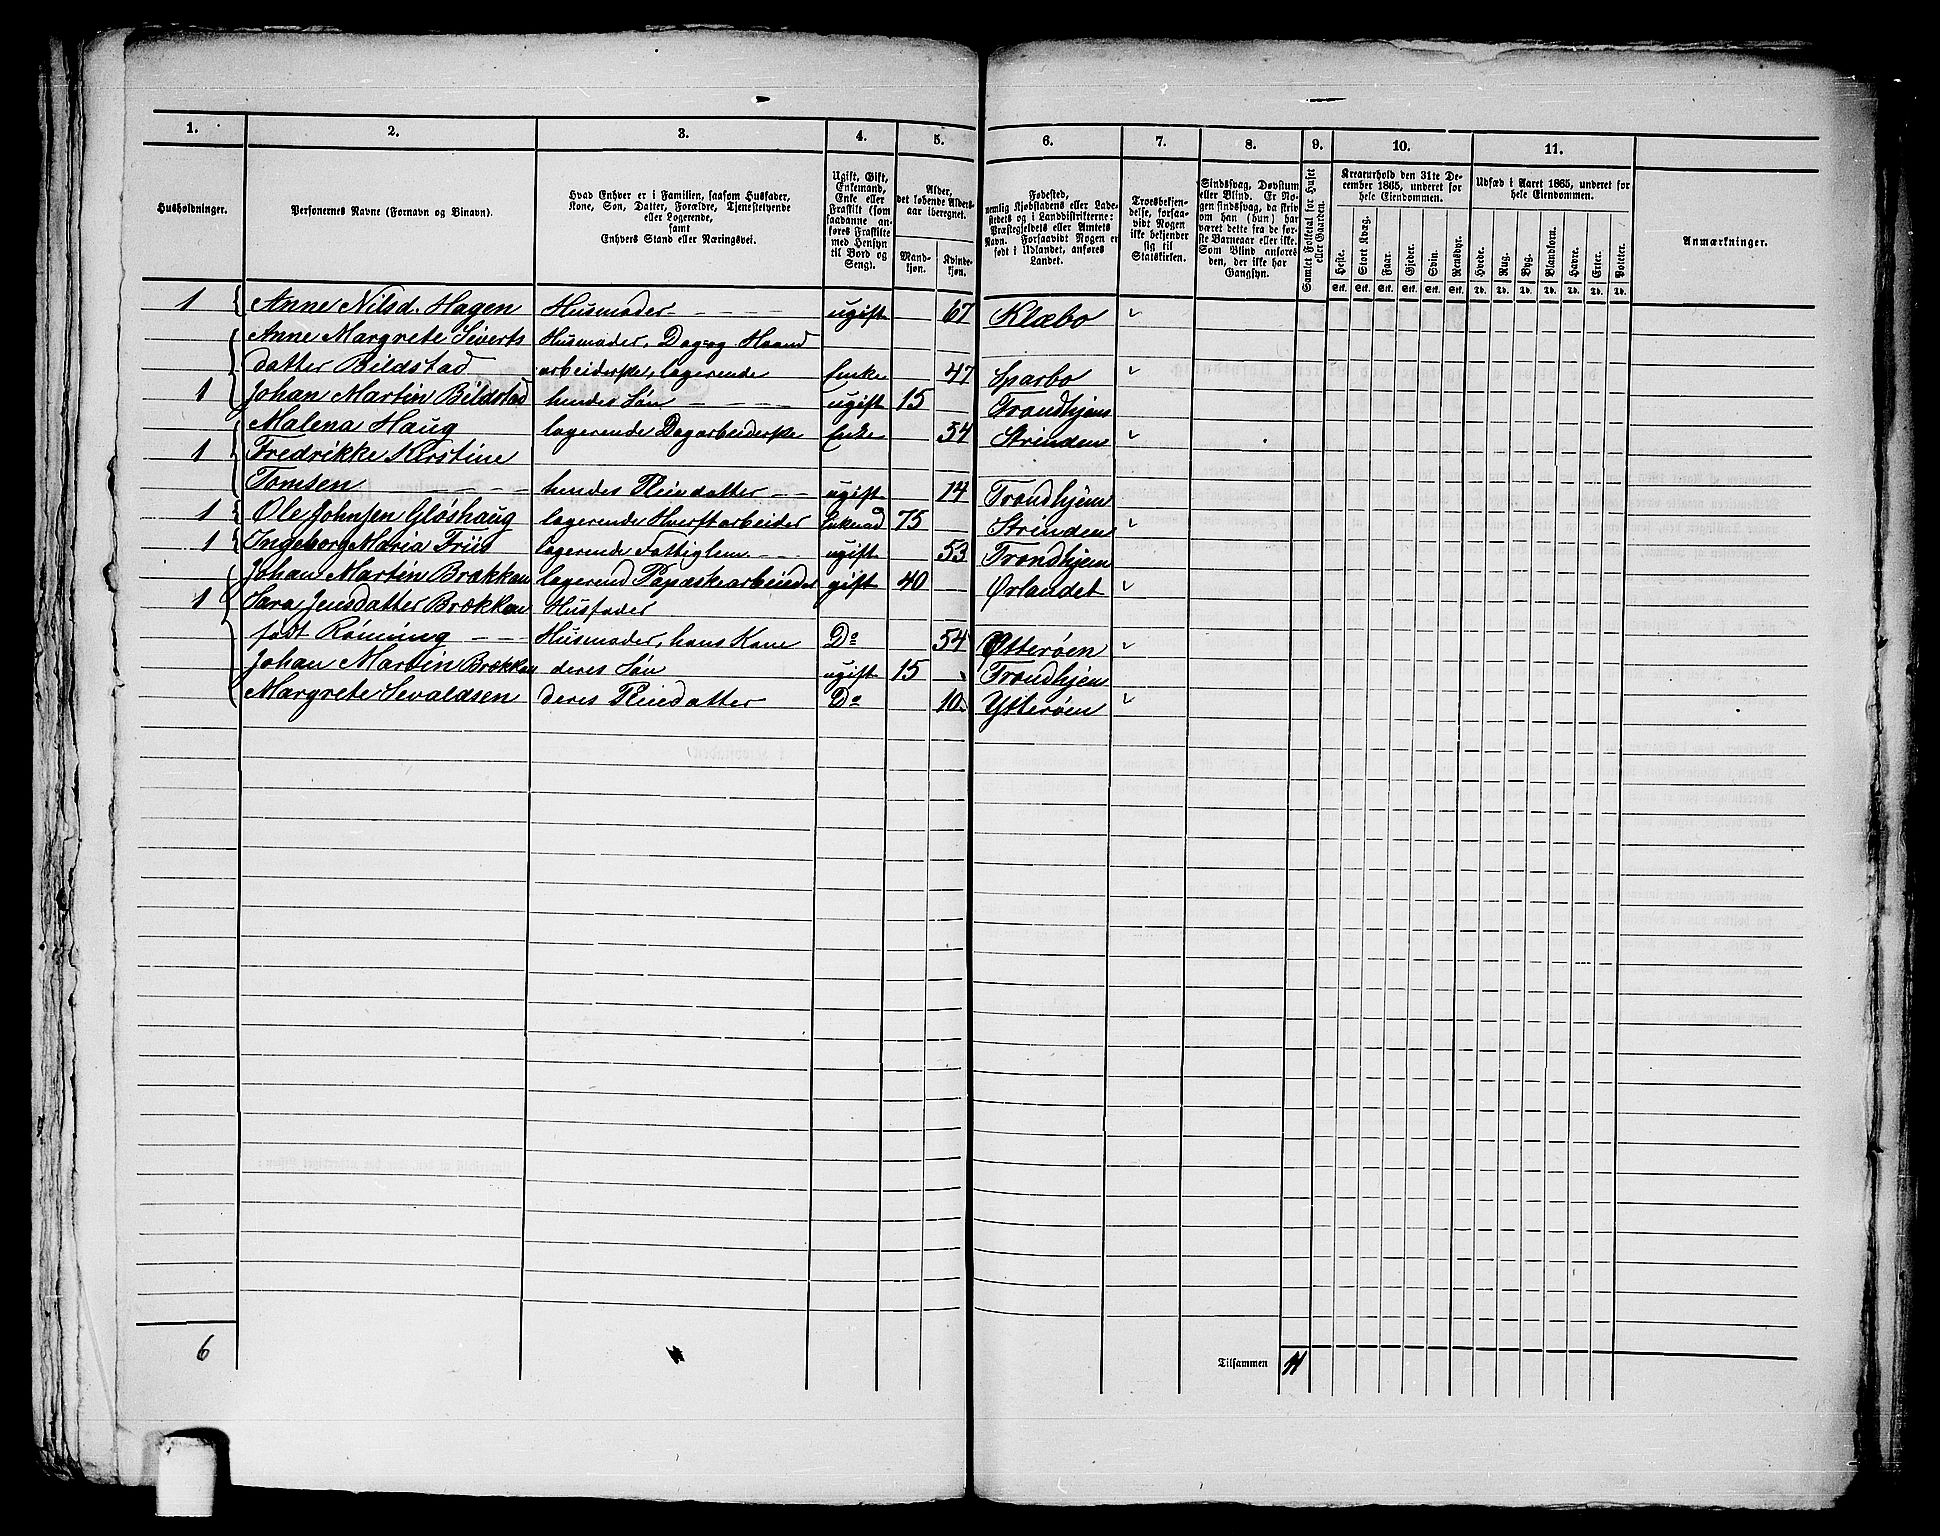 1. 2. 3. 4. 5. 6. 7. 8. 9. 10. 11.
Husholdninger.
Personernes Navne (Fornavn og Binavn).
Hvad Enhver er i Familien, saasom Husfader,
Kone, Søn, Datter, Forældre, Tjenestetyende
eller Logerende,
samt
Enhvers Stand eller Næringsvei.
Ugift, Gift,
Enkemand,
Enke eller
Fraskilt (som
saadanne an-
føres Fraskilte
med Hensyn
til Bord og
Seng).
Alder,
det løbende Alders-
aar iberegnet.
Mand-
kjøn.
Kvinde-
kjøn.
Fødested,
nemlig Kjøbstadens eller Lade-
stedets og i Landdistrikterne:
Præstegjeldets eller Amtets
Navn. Forsaavidt Nogen er
født i Udlandet, anføres
Landet.
Troesbekjen-
delse, forsaa-
vidt Nogen
ikke bekjender
sig til
Statskirken.
Sindssvag, Døvstum
eller Blind. Er No-
gen sindssvag, da skriv
om han (hun) har
været dette fra de før-
ste Barneaar eller ikke.
Som Blind anføres
den, der ikke har
Gangsyn.
Samlet Folketal for Huset
eller Gaarden.
Kreaturhold den 31te De-
cember 1865, underet for
hele Eiendommen.
Heste. Stort Kvæg. Faar. Gjeder. Svin. Rensdyr.
Stk. Stk. Stk. Stk. Stk. Stk.
Udsæd i Aaret 1865, underet for
hele Eiendommen.
Hvede. Rug. Byg. Blandkorn. Havre. Erter. Poteter.
Td. Td. Td. Td. Td. Td. Td.
Anmærkninger.
1 Anne Nilsd. Hagen Husmoder ugift 67 Klæbo
Anne Margrete Siverts Husmoder, Dag og Haand
datter Bildstad arbeiderske, logerende Enke 47 Sparbo
1 Johan Martin Bildstad hendes Søn ugift 15 Trondhjem
Malena Haug logerende Dagarbeiderske Enke 54 Strinden
1 Fredrikke Kirstine
Tomsen hendes Pleiedatter ugift 14 Trondhjem
1 Ole Johnsen Gløshaug logerende Hverftarbeider Enkmd 75 Strinden
1 Ingeborg Maria Friis logerende Fattiglem ugift 53 Trondhjem
Johan Martin Brækkan logerend Papæskearbeider gift 40 Ørlandet
1 Sara Jensdatter Brækkan Husfader
født Rönning Husmoder, hans Kone Do 54 Ytterøen
Johan Martin Brækkan deres Søn ugift 15 Trondhjem
Margrete Sevaldsen deres Pleiedatter Do 10 Ytterøen
6 Tilsammen 11